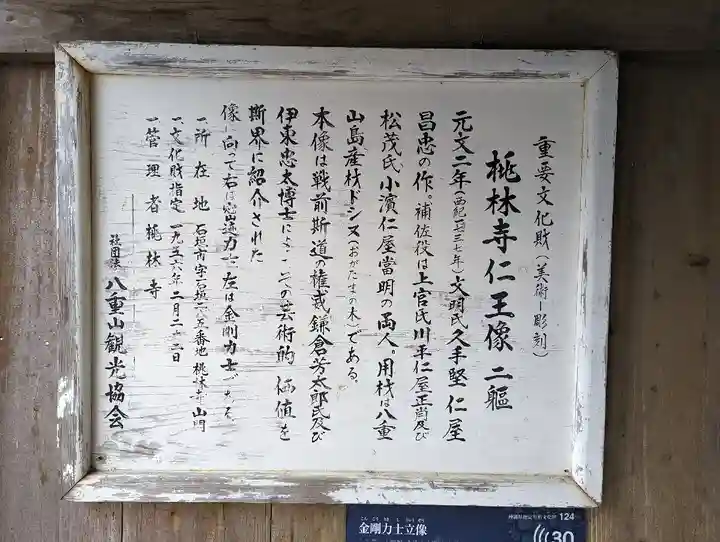 重要文化財(美術-彫刻)
桃林寺仁王像 二軀
元文二年(西紀一七三七年)文明氏久手堅仁屋
昌忠の作。補佐役は上官氏川平仁屋正尚及び
松茂氏小濱仁屋當明の両人。用材は八重
山島産材ドシヌ(おがたまの木)である。
本像は戦前斯道の権威鎌倉芳太郎氏及び
伊東忠太博士によってその芸術的価値を
斯界に紹介された
像に向って右は密迹力士左は金剛力士である
一所在地 石垣市字石垣二八五番地桃林寺山門
一文化財指定 一九五六年二月二二日
一管理者 桃林寺
社団法人 八重山観光協会
こんごうりきしりゅうぞう
金剛力士立像
124
30